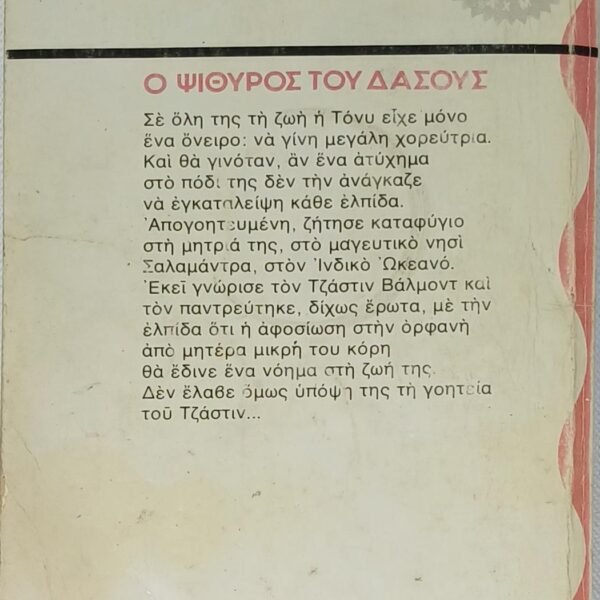 Ο ΨΙΘΥΡΟΣ ΤΟΥ ΔΑΣΟΥΣ
Σὲ ὅλη της τὴ ζωὴ ἡ Τόνυ εἶχε μόνο
ἕνα ὄνειρο: νὰ γίνη μεγάλη χορεύτρια.
Καὶ θὰ γινόταν, ἂν ἕνα ἀτύχημα
στὸ πόδι της δὲν τὴν ἀνάγκαζε
νὰ ἐγκαταλείψη κάθε ἐλπίδα.
Ἀπογοητευμένη, ζήτησε καταφύγιο
στὴ μητριά της, στὸ μαγευτικὸ νησὶ
Σαλαμάντρα, στὸν Ἰνδικὸ Ὠκεανό.
Ἐκεῖ γνώρισε τὸν Τζάστιν Βάλμοντ καὶ
τὸν παντρεύτηκε, δίχως ἔρωτα, μὲ τὴν
ἐλπίδα ὅτι ἡ ἀφοσίωση στὴν ὀρφανὴ
ἀπὸ μητέρα μικρή του κόρη
θὰ ἔδινε ἕνα νόημα στὴ ζωή της.
Δὲν ἔλαβε ὅμως ὑπόψη της τὴ γοητεία
τοῦ Τζάστιν...